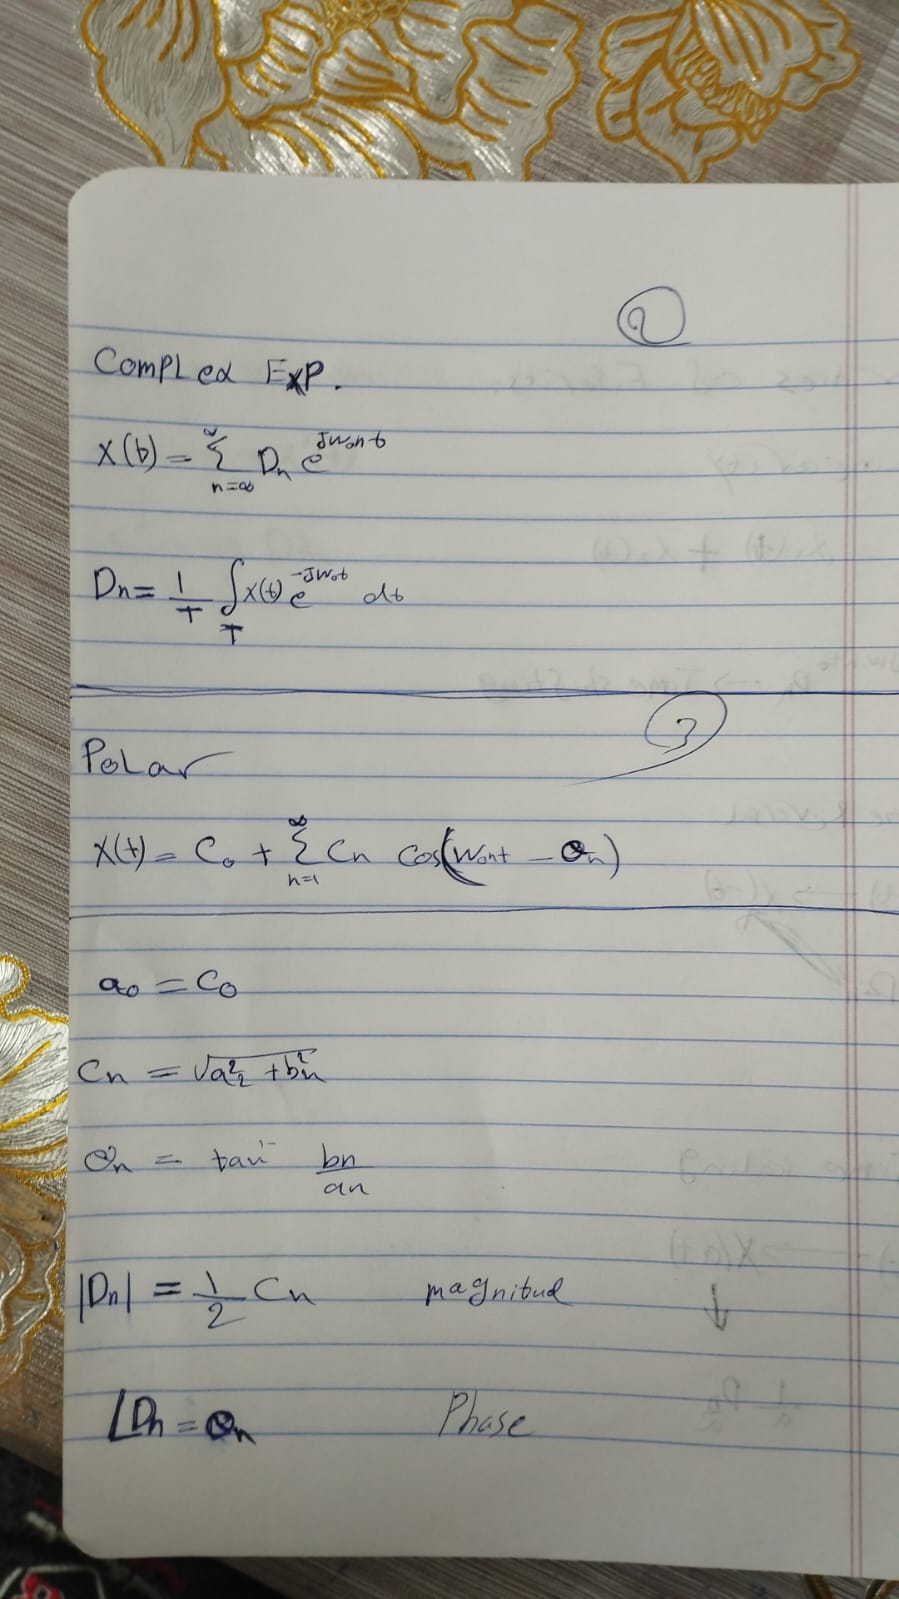 2
Complex Exp.
X(t) = ∞ Σ n=∞ Dn e^jwont
Dn = 1/T ∫T x(t) e^-jwot dt
3
Polar
X(t) = Co + ∞ Σ n=1 Cn Cos(wont - θn)
ao = Co
Cn = √a²2 + b²n
θn = tan⁻ bn/an
|Dn| = 1/2 Cn magnitud
∠Dn = θn Phase